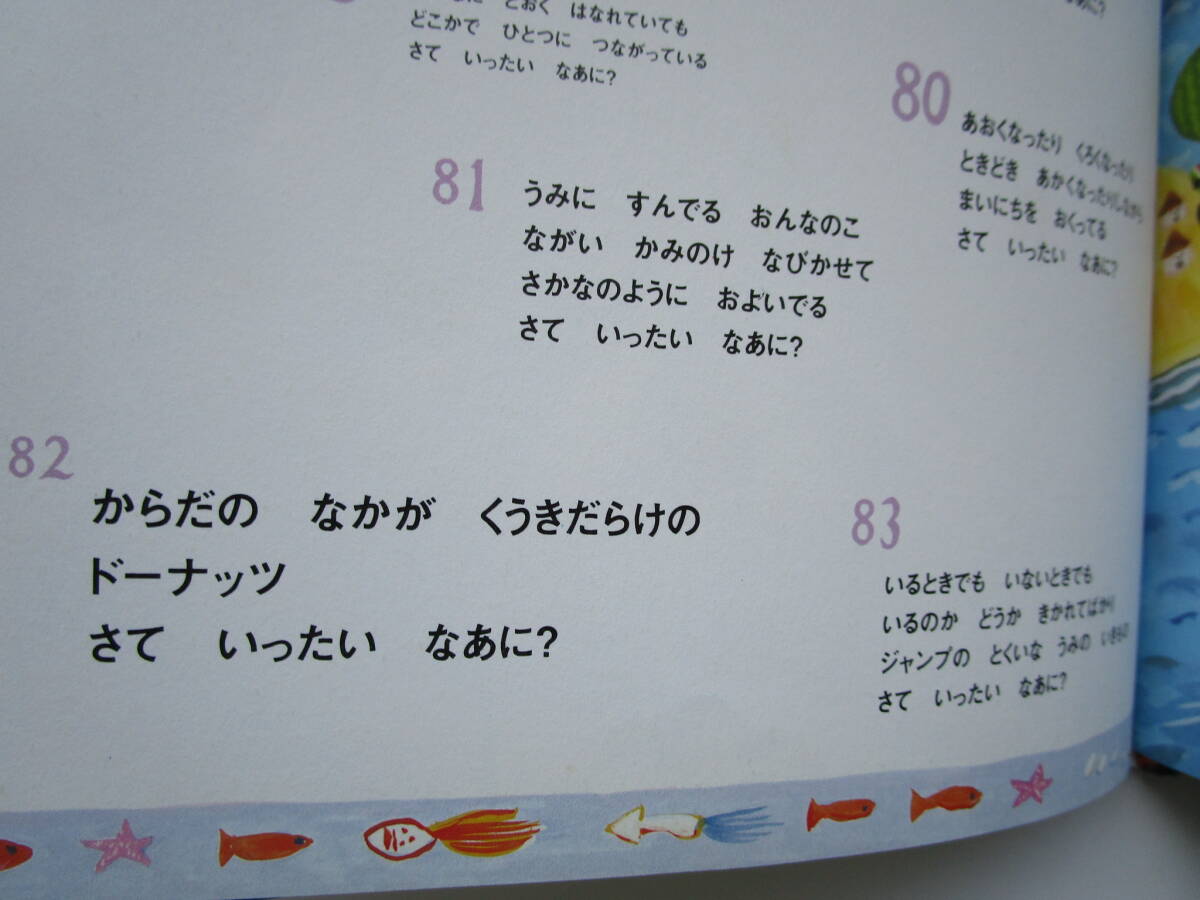 とおく　はなれていても
どこかで　ひとつに　つながっている
さて　いったい　なあに?
なあに?
80
あおくなったり　くろくなったり
ときどき　あかくなったりしながら
まいにちを　おくってる
さて　いったい　なあに?
81
うみに　すんでる　おんなのこ
ながい　かみのけ　なびかせて
さかなのように　およいでる
さて　いったい　なあに?
82
からだの　なかが　くうきだらけの
ドーナッツ
さて　いったい　なあに?
83
いるときでも　いないときでも
いるのか　どうか　きかれてばかり
ジャンプの　とくいな　うみの　いきもの
さて　いったい　なあに?